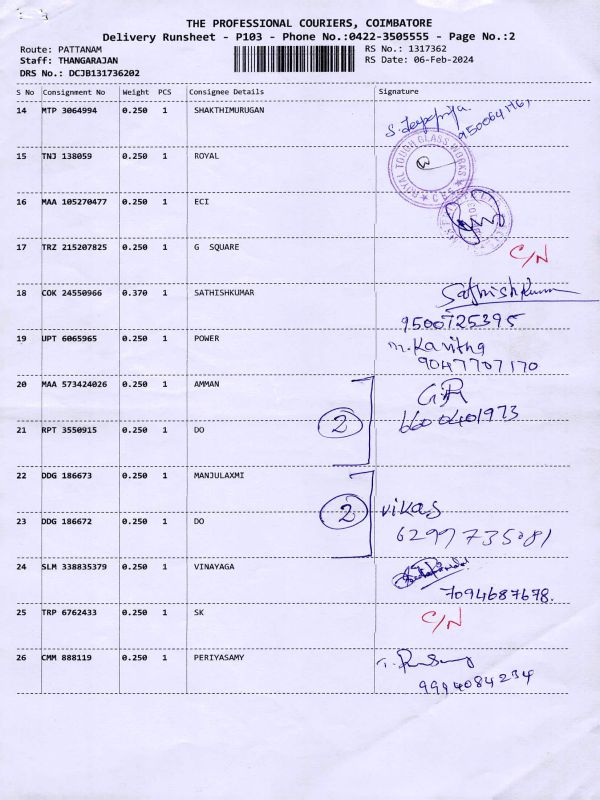 THE PROFESSIONAL COURIERS, COIMBATORE
Delivery Runsheet - P103 - Phone No.:0422-3505555 - Page No.:2
Route: PATTANAM RS No.: 1317362
Staff: THANGARAJAN RS Date: 06-Feb-2024
DRS No.: DCJB131736202
S No Consignment No Weight PCS Consignee Details Signature
14 MTP 3064994 0.250 1 SHAKTHIMURUGAN
15 TNJ 138059 0.250 1 ROYAL ROYAL TOUGH GLASS WORKS
16 MAA 105270477 0.250 1 ECI
17 TRZ 215207825 0.250 1 G SQUARE C/N
18 COK 24550966 0.370 1 SATHISHKUMAR Sathishkumar
9500725395
19 UPT 6065965 0.250 1 POWER m. Kavitha
9047707170
20 MAA 573424026 0.250 1 AMMAN
6600401973
21 RPT 3550915 0.250 1 DO 2
22 DDG 186673 0.250 1 MANJULAXMI
2 vikas
23 DDG 186672 0.250 1 DO 6299735081
24 SLM 338835379 0.250 1 VINAYAGA
7094687678.
25 TRP 6762433 0.250 1 SK C/N
26 CMM 888119 0.250 1 PERIYASAMY
9994084234